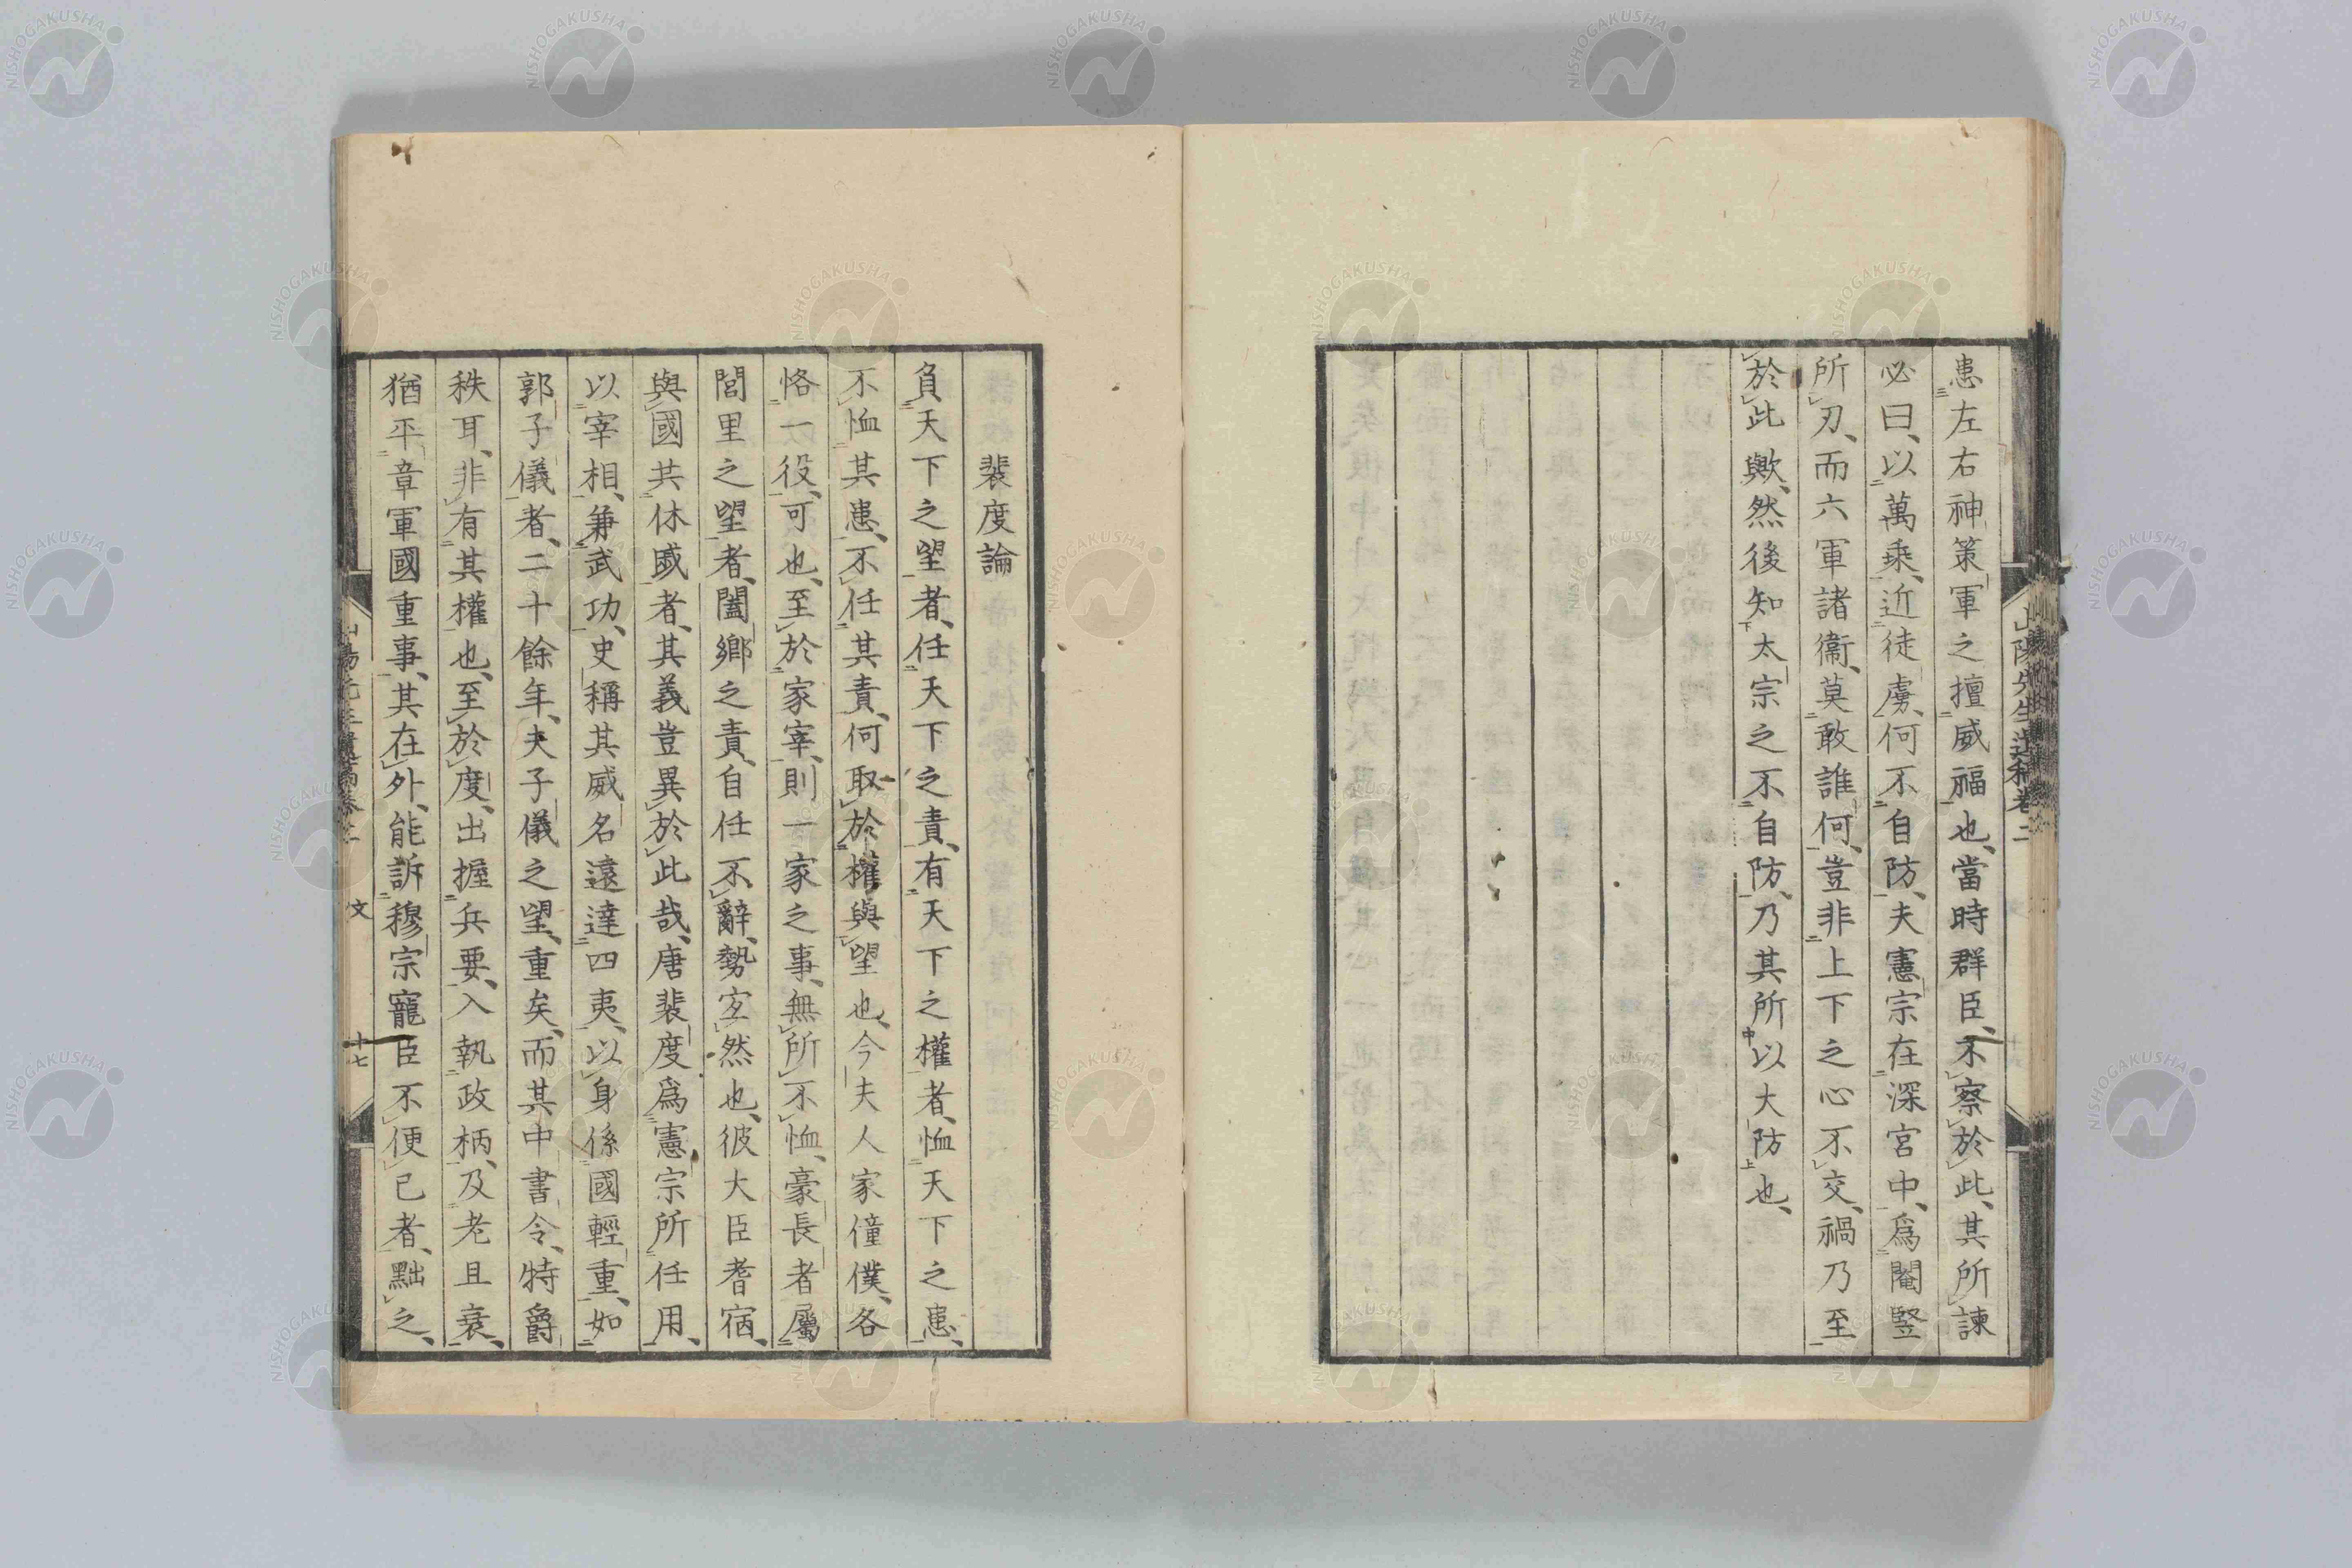 患左右神策軍之擅威福也、當時群臣、不察於此、其所諫
必曰、以萬乘、近徒虜、何不自防、夫憲宗在深宮中、爲閹豎
所刃、而六軍諸衞、莫敢誰何、豈非上下之心不交、禍乃至
於此歟、然後知太宗之不自防、乃其所以大防也、
山陽先生遺稿卷二
裴度論
負天下之望者、任天下之責、有天下之權者、恤天下之患、
不恤其患、不任其責、何取於權與望也、今夫人家僮僕、各
恪一役、可也、至於家宰、則一家之事、無所不恤、豪長者屬
閭里之望者、闔鄉之責、自任不辭、勢宜然也、彼大臣耆宿、
與國共休戚者、其義豈異於此哉、唐裴度爲憲宗所任用、
以宰相、兼武功、史稱其威名遠達四夷、以身係國輕重、如
郭子儀者、二十餘年、夫子儀之望、重矣、而其中書令、特爵
秩耳、非有其權也、至於度、出握兵要、入執政柄、及老且衰、
猶平章軍國重事、其在外、能訴穆宗寵臣不便己者、黜之、
山陽先生遺稿卷二
文
十七
NISHOGAKUSHA